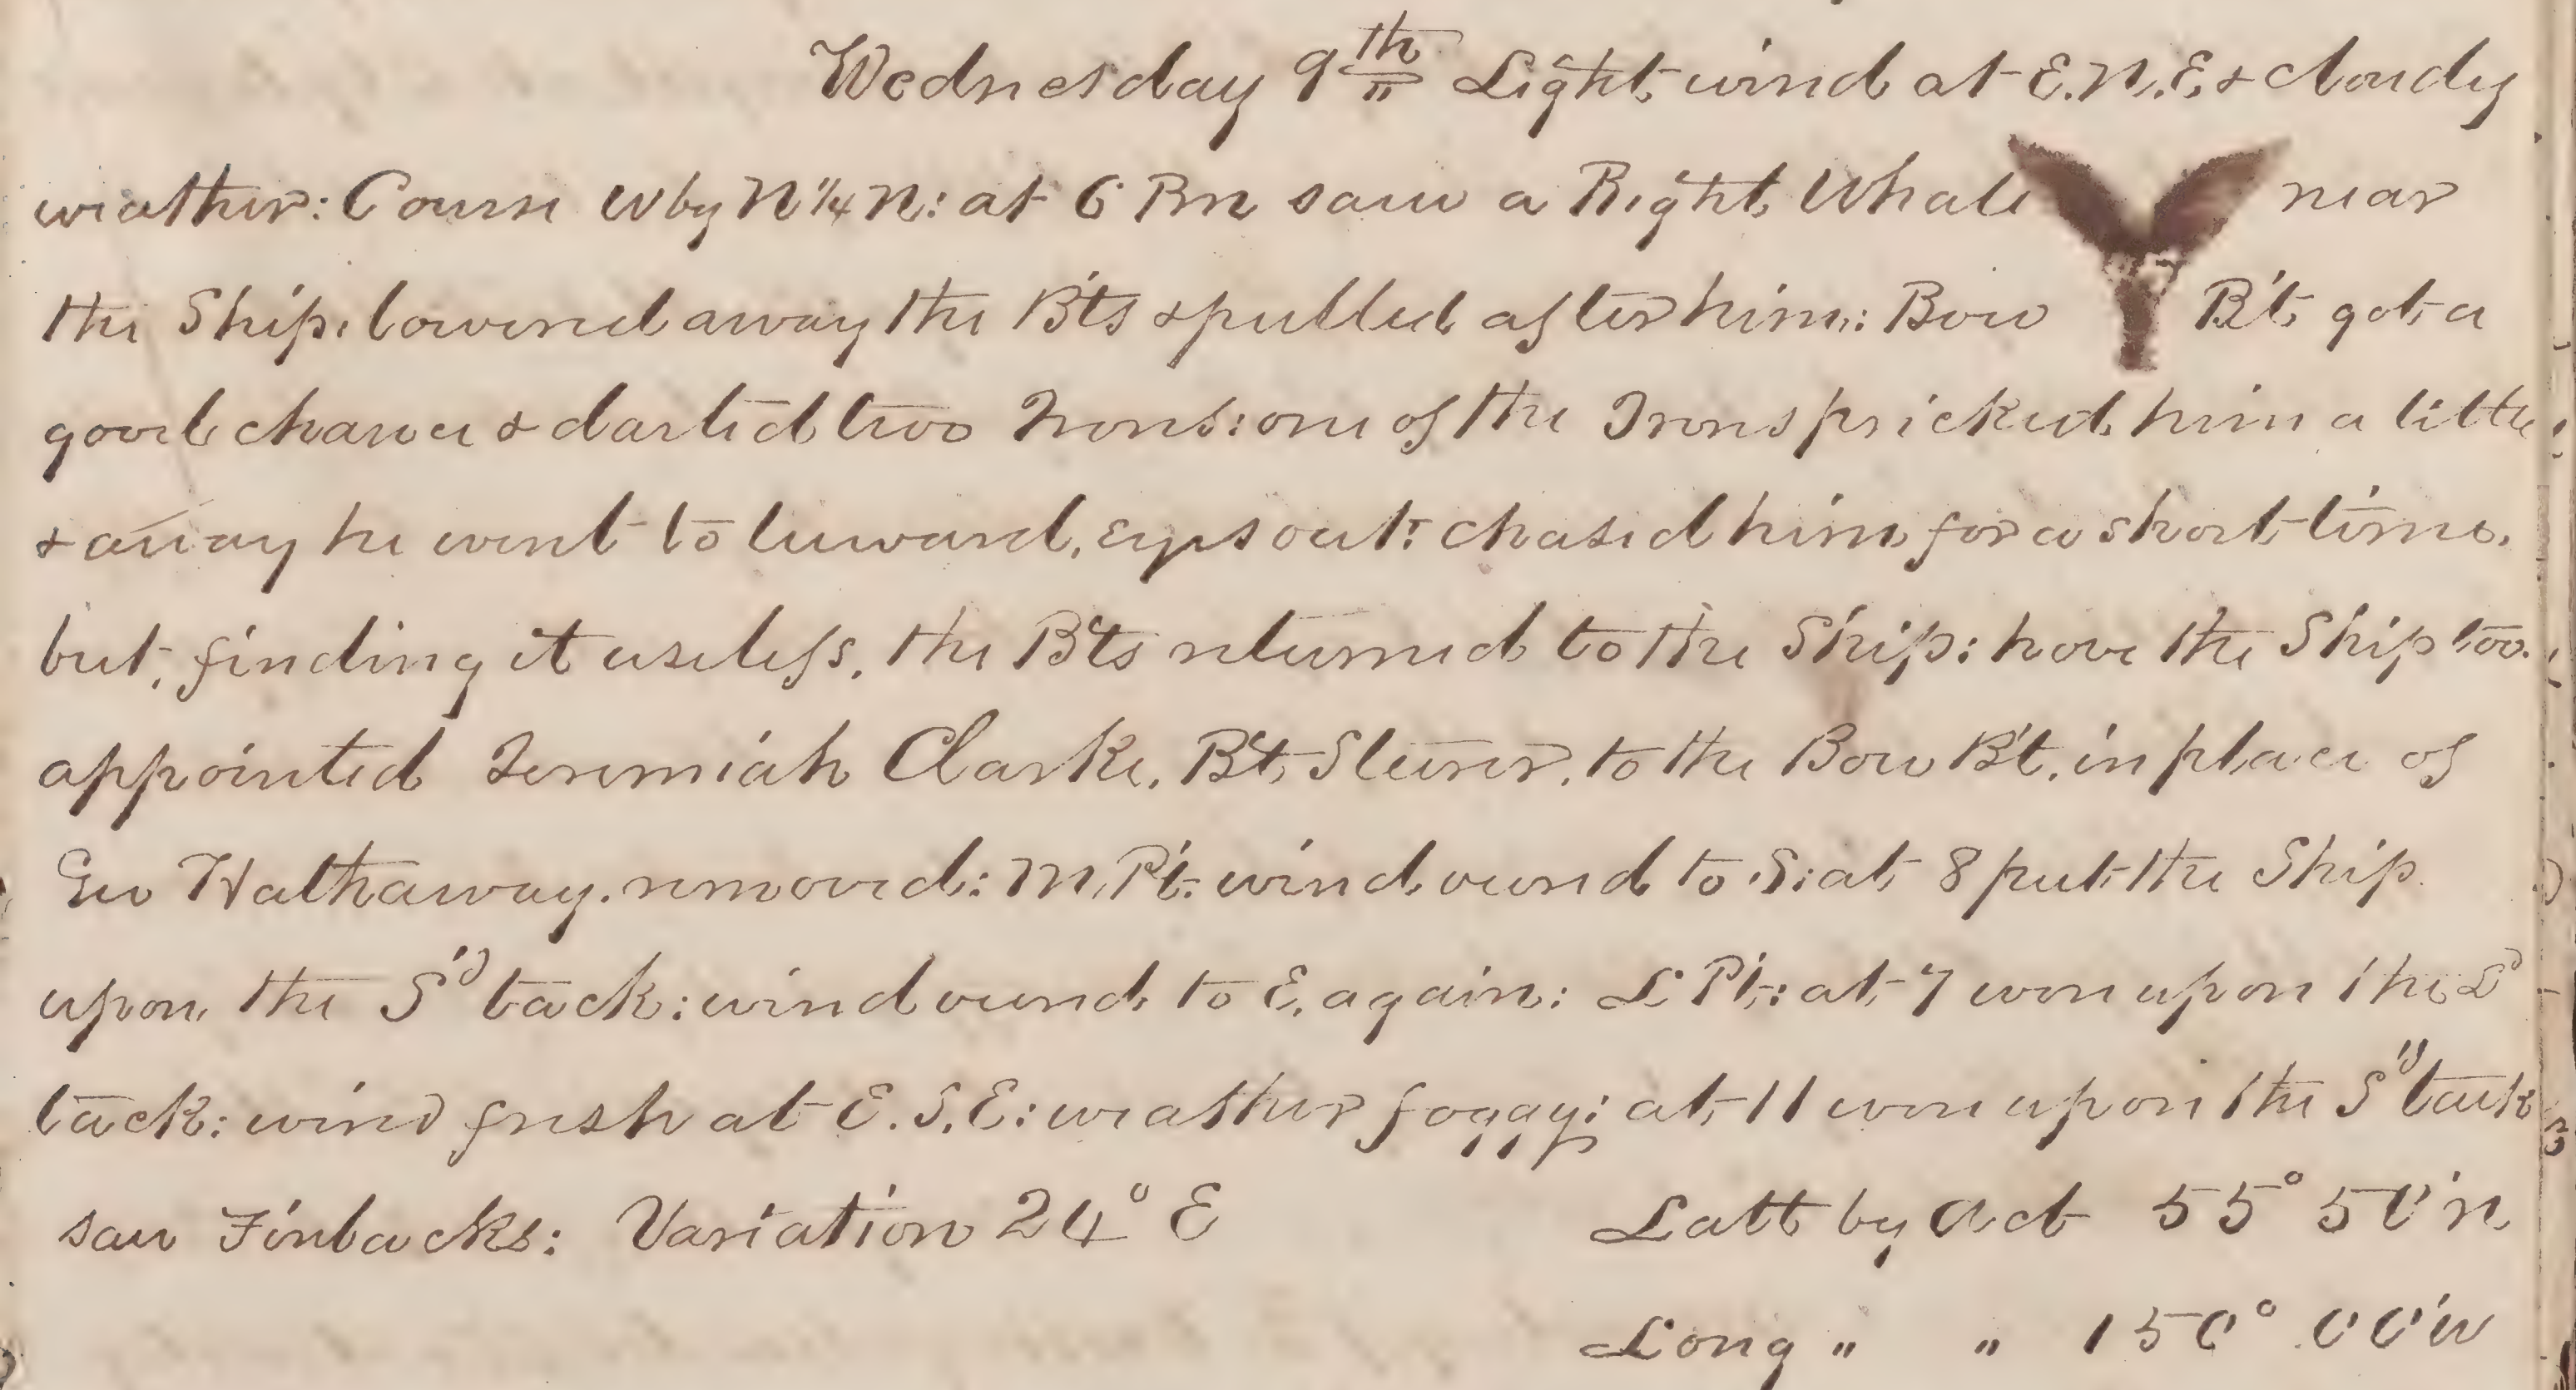 Wednesday 9th Light wind at E.N.E, & cloudy
weather: Course W by N ¼ N: at 6 Pm saw a Right Whale near
the Ship: lowered away the B'ts & pulled after him: Bow B't got a
good chance & darted two Irons: one of the Irons pricked him a little
& away he went to luward, eyes out: chased him for a short time.
but, finding it useless, the B'ts returned to the Ship: hove the Ship too.
appointed Jeremiah Clarke, B't Steerer, to the Bow B't, in place of
Geo Hathaway. removed: M, P't: wind veered to S: at 8 put the Ship
upon the S'd tack: wind veered to E, again: L P't: at 7 wore upon the L'd
tack: wind fresh at E.S.E: weather foggy: at 11 wore upon the S'd tack
saw Finbacks: Variation 24° E Latt by Act 55° 50' N
Long " " 150° 00' W